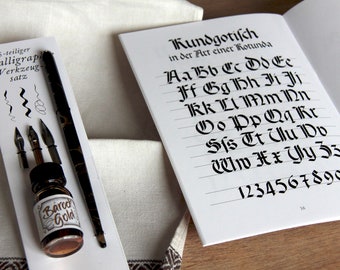 5-teiliger
Kalligraphie
Werkzeug
satz
Barock
Gold
Rundgotisch
in der Art einer Rotunda
Aa Bb Cc Dd Ee
Ff Gg Hh Ii Jj
Kk Ll Mm Nn
Oo Pp Qq Rr
Ssſs Tt Uu Vv
Ww Xx Yy Zz
1234567890